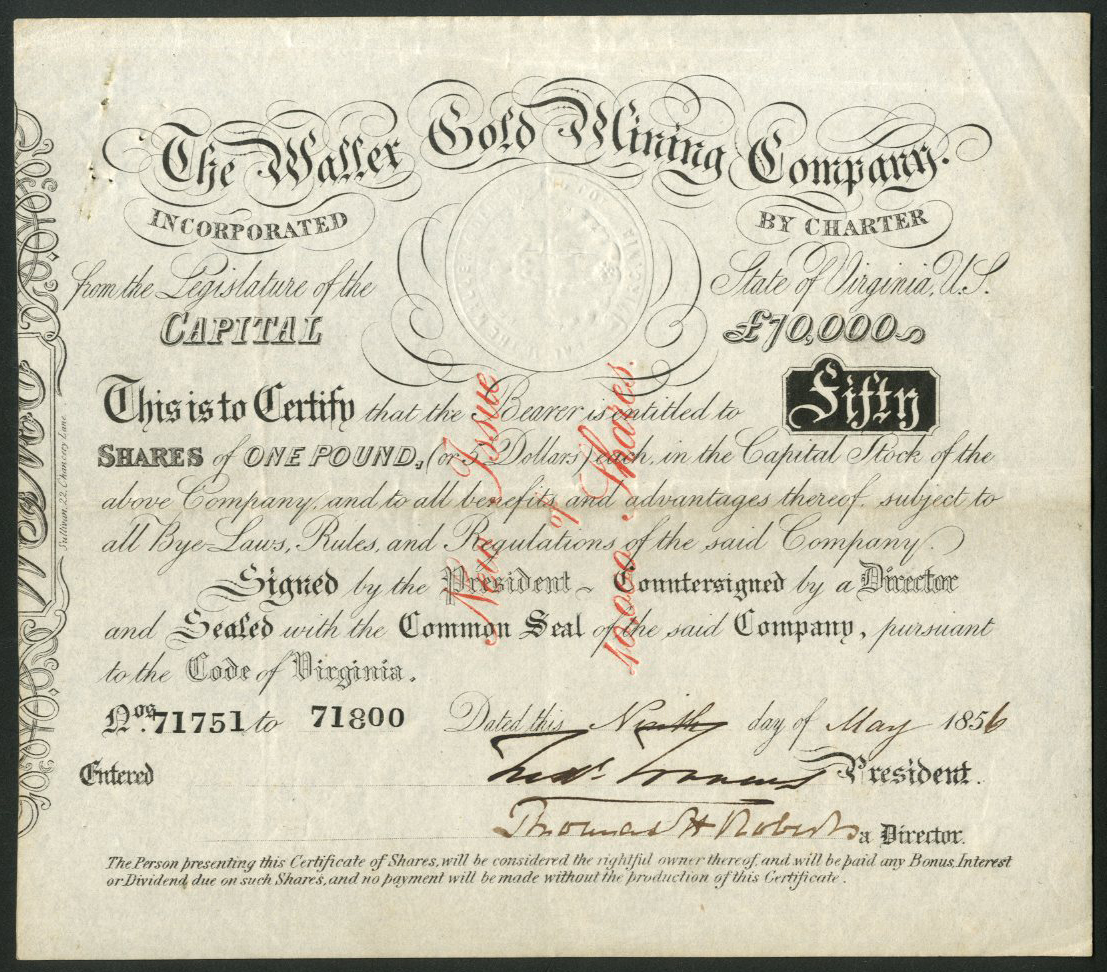 The Waller Gold Mining Company.
INCORPORATED BY CHARTER
from the Legislature of the State of Virginia, U.S.
CAPITAL £70,000
This is to Certify that the Bearer is entitled to Fifty
SHARES of ONE POUND, (or 5 Dollars) each, in the Capital Stock of the
above Company, and to all benefits and advantages thereof, subject to
all Bye-Laws, Rules, and Regulations of the said Company.
Signed by the President Countersigned by a Director
and Sealed with the Common Seal of the said Company, pursuant
to the Code of Virginia.
Nos. 71751 to 71800 Dated this Ninth day of May 1856
Entered President.
Thomas H Roberts a Director.
The Person presenting this Certificate of Shares, will be considered the rightful owner thereof, and will be paid any Bonus, Interest
or Dividend, due on such Shares, and no payment will be made without the production of this Certificate.
New Issue
of
10,000 Shares.
Sullivan, 22, Chancery Lane.